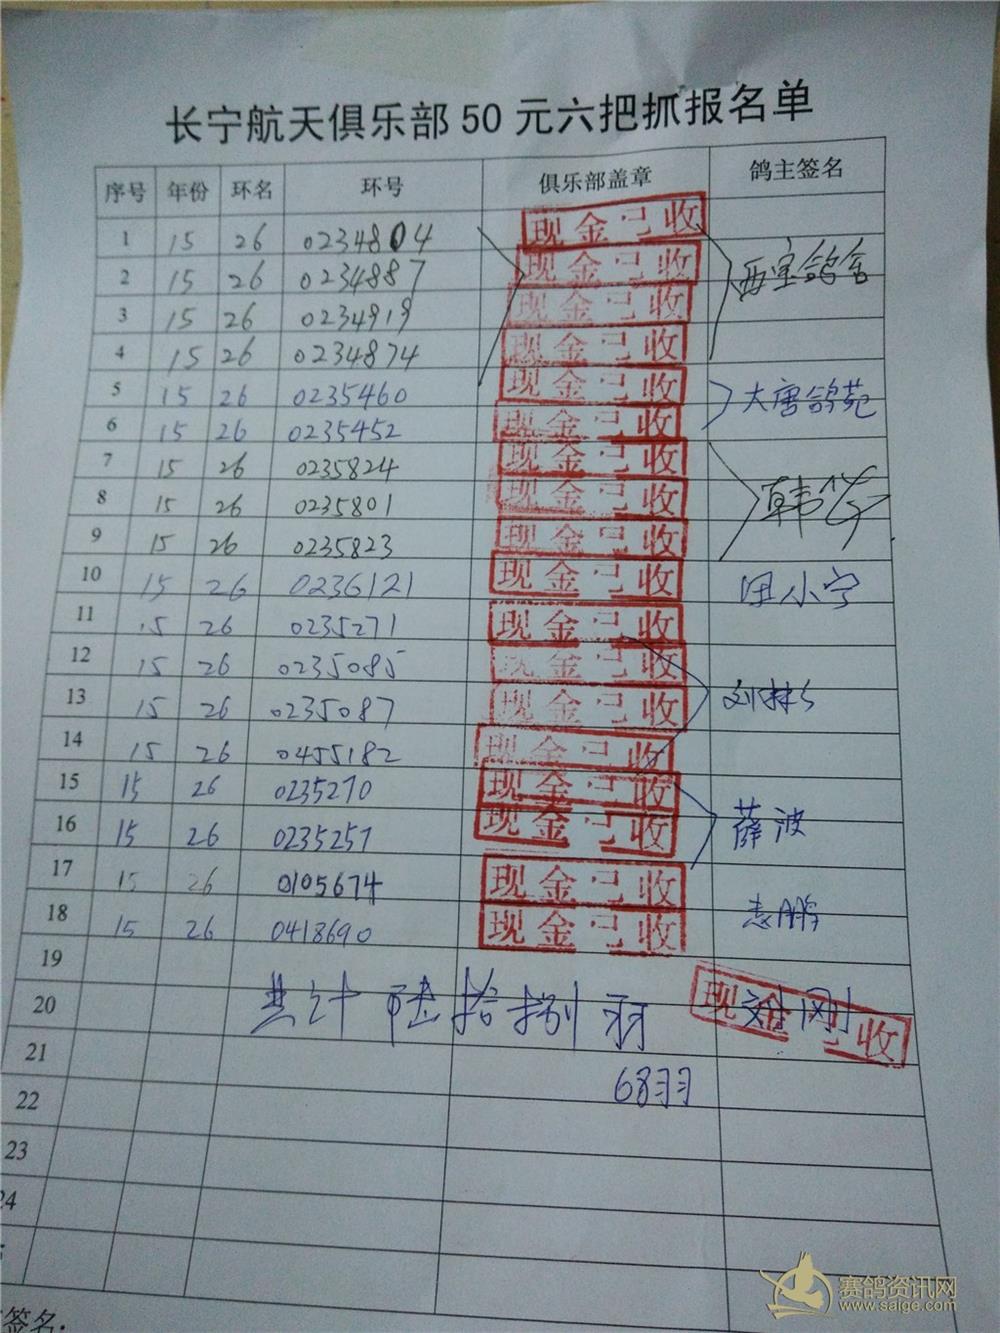 长宁航天俱乐部50元六把抓报名单
序号 年份 环名 环号 俱乐部盖章 鸽主签名
1 15 26 0234804 现金已收
2 15 26 0234887 现金已收 西宝鸽舍
3 15 26 0234919 现金已收
4 15 26 0234874 现金已收
5 15 26 0235460 现金已收 大唐鸽苑
6 15 26 0235452 现金已收
7 15 26 0235824 现金已收
8 15 26 0235801 现金已收 韩
9 15 26 0235823 现金已收
10 15 26 0236121 现金已收 田小宁
11 15 26 0235271 现金已收
12 15 26 0235085 现金已收
13 15 26 0235087 现金已收 刘林
14 15 26 0455182 现金已收
15 15 26 0235270 现金已收
16 15 26 0235257 现金已收 薛波
17 15 26 0105674 现金已收
18 15 26 0418690 现金已收 志鹏
19
20 共计 陆拾捌 羽 刘刚 现金已收
21
68羽
22
23
24
签名:
赛鸽资讯网
www.saige.com